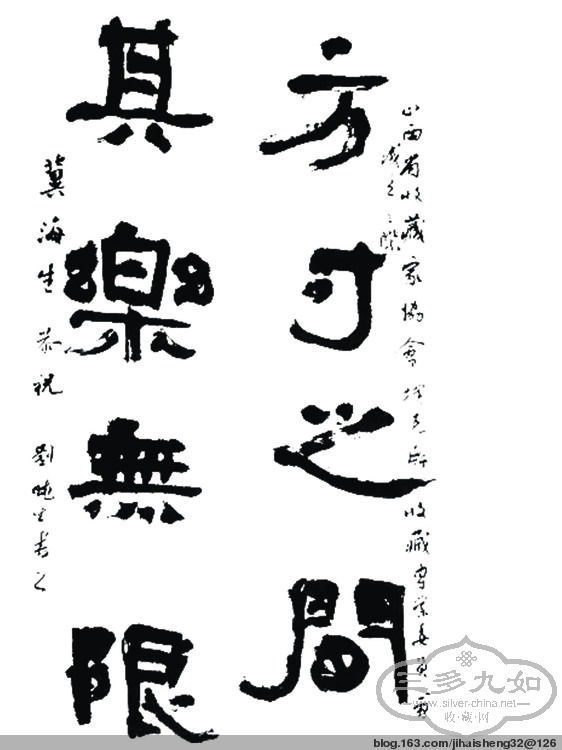 山西省收藏家協會 收藏專業委員會
成立之際
方寸之間
其樂無限
冀海生 恭祝 劉曉生書之
三多九如
www.silver-china.net
收·藏·网
blog.163.com/jihaisheng32@126